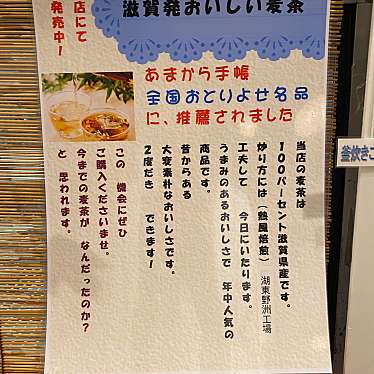 滋賀発おいしい麦茶
店にて
発売中!
あまから手帳
全国おとりよせ名品
に、推薦されました
当店の麦茶は
100パーセント滋賀県産です。
炒り方には(熱風焙煎) 湖東野洲工場
工夫して 今日にいたります。
うまみのあるおいしさで 年中人気の
商品です。
昔からある
大変素朴なおいしさです。
2度だき できます!
この 機会にぜひ
ご購入くださいませ。
今までの麦茶が なんだったのか?
と 思われます。
釜炊きご